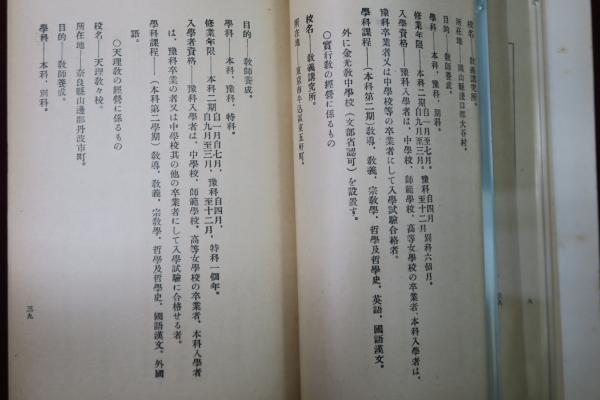 校名――教義講究所。
所在地――岡山縣淺口郡大谷村。
目的――教師養成。
學科――本科、豫科、別科。
修業年限――本科二期自一月至七月、豫科自四月至十二月、別科六個月。
入學資格――豫科入學者は、中學校、師範學校、高等女學校の卒業者、本科入學者は、
豫科卒業者又は中學校等の卒業者にして入學試驗合格者。
學科課程――(本科第二期)教導、教義、宗教學、哲學及哲學史、英語、國語漢文。
外に金光教中學校(文部省認可)を設置す。
○實行教の經營に係るもの
校名――教義講究所。
所在地――東京市牛込區東五軒町。
三八
目的――教師養成。
學科――本科、豫科、特科。
修業年限――本科二期自一月自七月、豫科自四月、特科一個年。
自九月至三月、至十二月、
入學者資格――豫科入學者は、中學校、師範學校、高等女學校の卒業者、本科入學者
は、豫科卒業の者又は中學校其の他の卒業者にして入學試驗に合格せる者。
學科課程――(本科第二學期)教導、教義、宗教學、哲學及哲學史、國語漢文、外國
語。
○天理教の經營に係るもの
校名――天理教々校。
所在地――奈良縣山邊郡丹波市町。
目的――教師養成。
學科――本科、別科。
三九